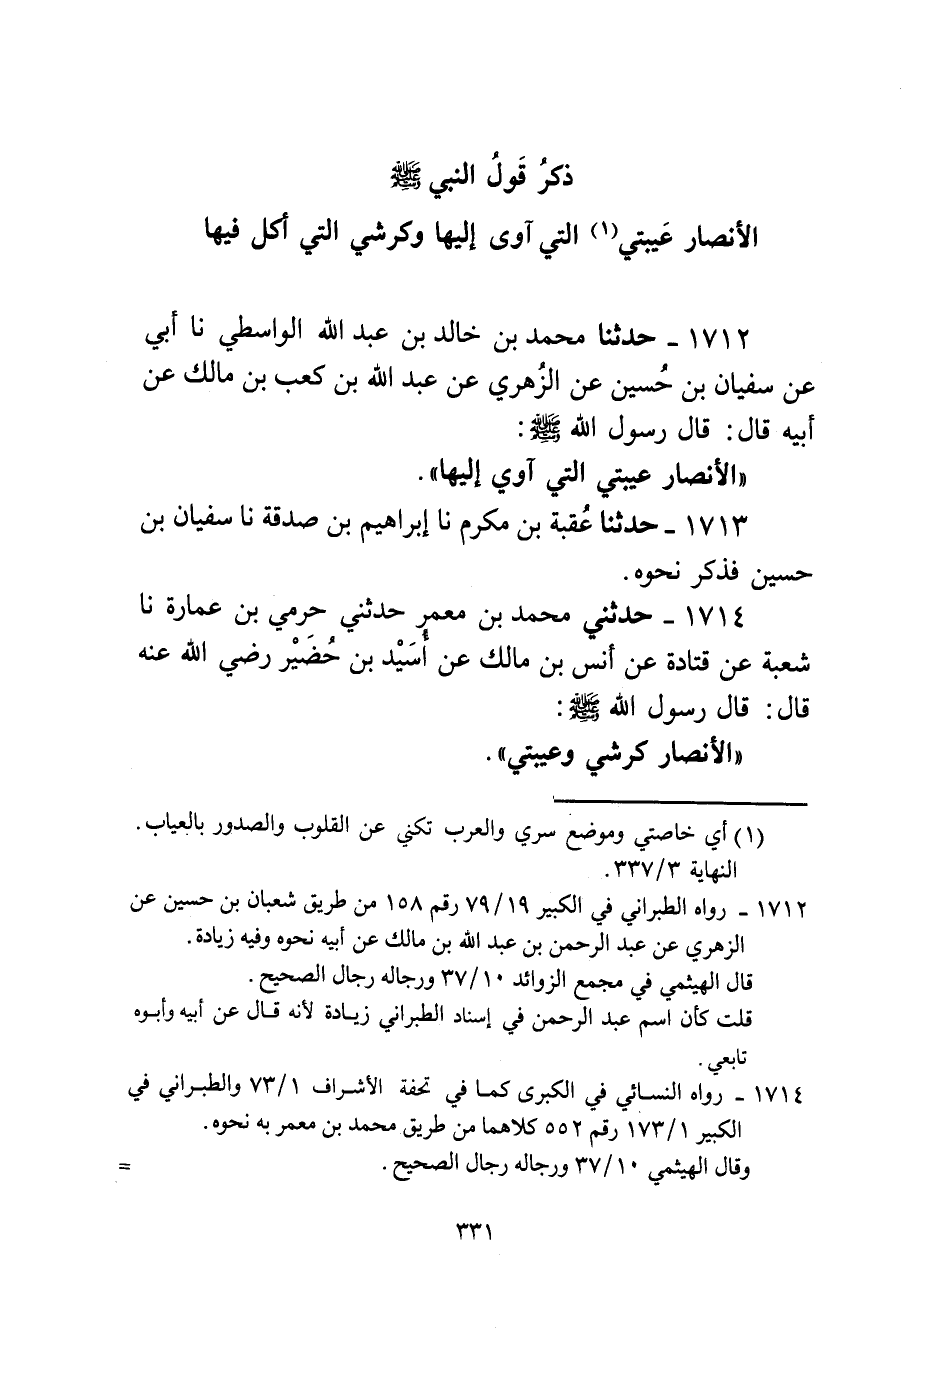 ذكرُ قَولُ النبي ﷺ
الأنصار عَيبتي(١) التي آوى إليها وكرشي التي أكل فيها
١٧١٢ ـ حدثنا محمد بن خالد بن عبد الله الواسطي نا أبي
عن سفيان بن حُسين عن الزُهري عن عبد الله بن كعب بن مالك عن
أبيه قال: قال رسول الله ﷺ:
«الأنصار عيبتي التي آوي إليها».
١٧١٣ ـ حدثنا عُقبة بن مكرم نا إبراهيم بن صدقة نا سفيان بن
حسين فذكر نحوه.
١٧١٤ ـ حدثني محمد بن معمر حدثني حرمي بن عمارة نا
شعبة عن قتادة عن أنس بن مالك عن أُسَيْد بن حُضَيْر رضي الله عنه
قال: قال رسول الله ﷺ:
«الأنصار كرشي وعيبتي».
(١) أي خاصتي وموضع سري والعرب تكني عن القلوب والصدور بالعياب.
النهاية ٣٣٧/٣.
١٧١٢ ـ رواه الطبراني في الكبير ٧٩/١٩ رقم ١٥٨ من طريق شعبان بن حسين عن
الزهري عن عبد الرحمن بن عبد الله بن مالك عن أبيه نحوه وفيه زيادة.
قال الهيثمي في مجمع الزوائد ٣٧/١٠ ورجاله رجال الصحيح.
قلت كأن اسم عبد الرحمن في إسناد الطبراني زيادة لأنه قال عن أبيه وأبوه
تابعي.
١٧١٤ ـ رواه النسائي في الكبرى كما في تحفة الأشراف ٧٣/١ والطبراني في
الكبير ١٧٣/١ رقم ٥٥٢ كلاهما من طريق محمد بن معمر به نحوه.
وقال الهيثمي ٣٧/١٠ ورجاله رجال الصحيح.
=
٣٣١